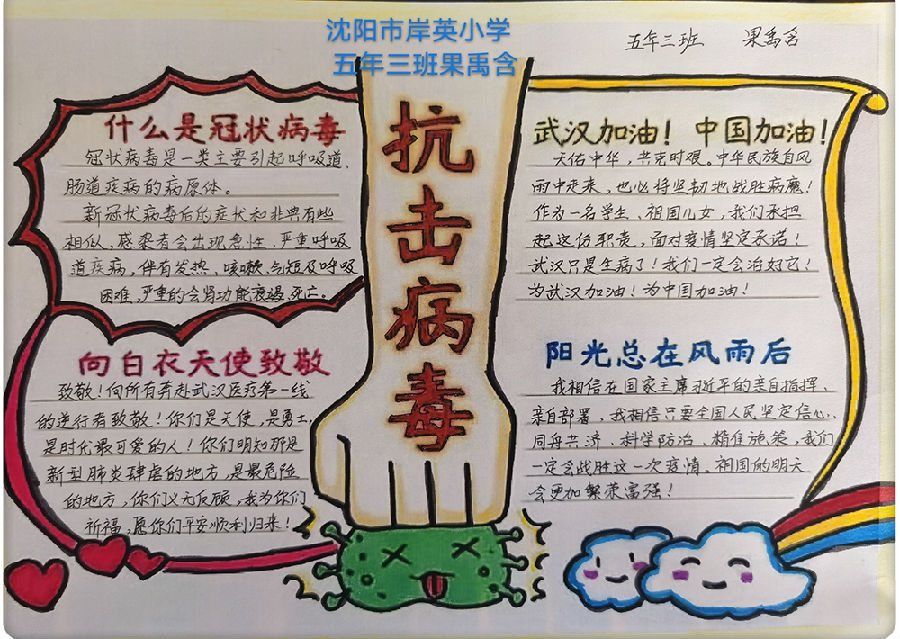 沈阳市岸英小学
五年三班果禹含
五年三班 果禹含
抗击病毒
什么是冠状病毒
冠状病毒是一类主要引起呼吸道、
肠道疾病的病原体。
新冠状病毒后的症状和非典有些
相似,感染者会出现急性、严重呼吸
道疾病,伴有发热、咳嗽、气短及呼吸
困难,严重的会肾功能衰竭、死亡。
向白衣天使致敬
致敬!向所有奔赴武汉医疗第一线
的逆行者致敬!你们是天使,是勇士,
是时代最可爱的人!你们明知那是
新型肺炎肆虐的地方,是最危险
的地方,你们义无反顾,我为你们
祈福,愿你们平安顺利归来!
武汉加油!中国加油!
天佑中华,共克时艰。中华民族自风
雨中走来,也必将坚韧地战胜病魔!
作为一名学生、祖国儿女,我们承担
起这份职责,面对疫情坚定承诺!
武汉只是生病了!我们一定会治好它!
为武汉加油!为中国加油!
阳光总在风雨后
我相信在国家主席习近平的亲自指挥、
亲自部署,我相信只要全国人民坚定信心、
同舟共济、科学防治、精准施策,我们
一定会战胜这一次疫情,祖国的明天
会更加繁荣富强!